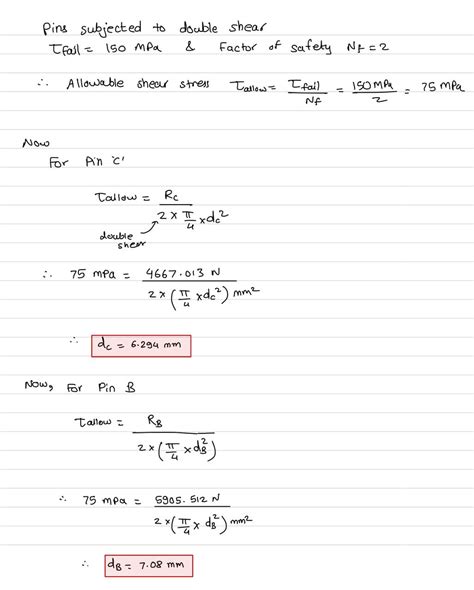 Pins subjected to double shear
τfail = 150 MPa & Factor of safety Nf = 2
∴ Allowable shear stress τallow = τfail / Nf = 150 MPa / 2 = 75 MPa
Now
For Pin 'C'
τallow = Rc / 2 × π/4 × dc²
double shear
∴ 75 mPa = 4667.013 N / 2 × (π/4 × dc²) mm²
∴ dc = 6.294 mm
Now, For Pin B
τallow = RB / 2 × (π/4 × dB²)
∴ 75 mPa = 5905.512 N / 2 × (π/4 × dB²) mm²
∴ dB = 7.08 mm